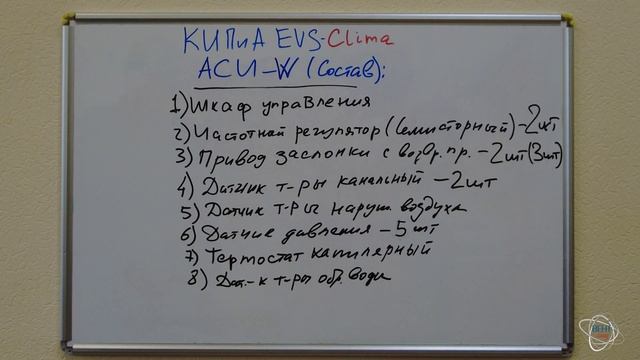 КИПиА EVS-Clima
АСU-W (Состав):
1) Шкаф управления
2) Частотной регулятор (Семисторный) - 2 шт
3) Привод заслонки с возвр. пр. - 2 шт (3 шт)
4) Датчик т-ры канальный - 2 шт
5) Датчик т-ры наруж воздуха
6) Датчик давления - 5 шт
7) Термостат капилярный
8) Дат-к т-ры обр. воды